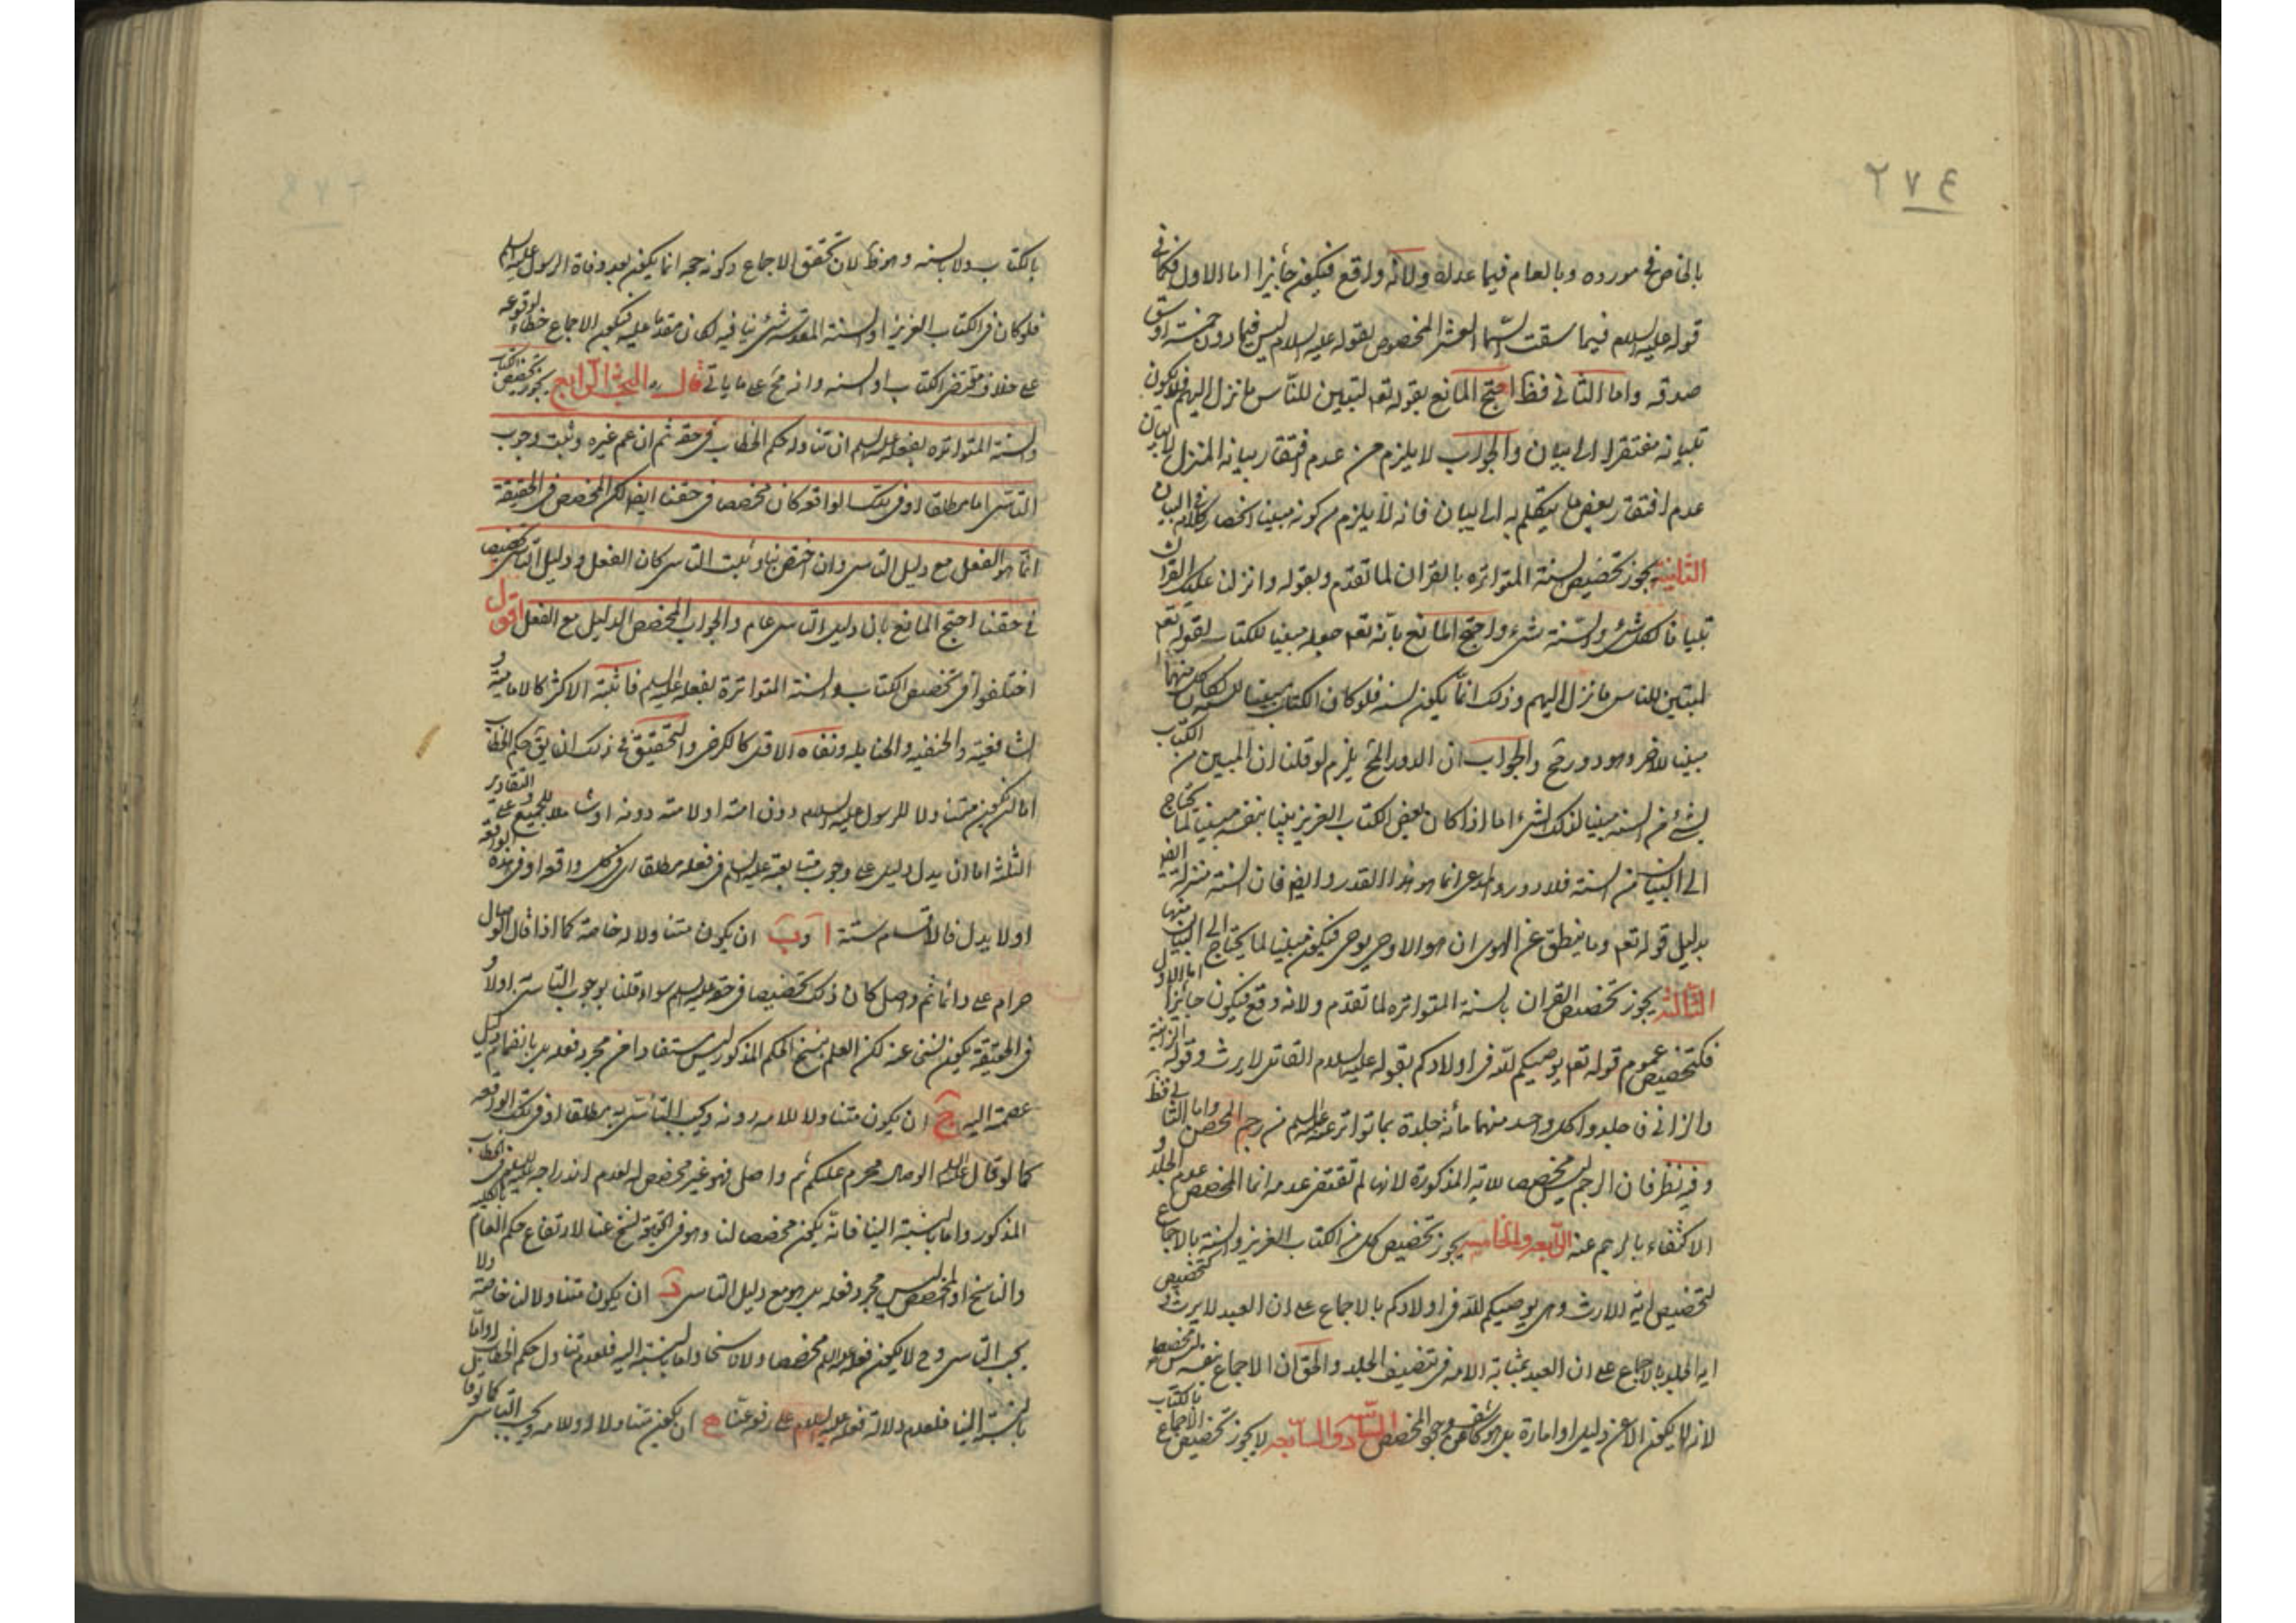 ٢٧٤
بالخاص فى مورده وبالعام فيما عداه ولانه واقع فيكون جائزا اما الاول فكما فى
قوله عليه السلام فيما سقت السما العشر المخصوص بقوله عليه السلام ليس فيما دون خمسة اوسق
صدقه واما الثانى فظ احتج المانع بقوله تعه لتبين للناس ما نزل اليهم فلا يكون
تبيانه مفتقرا الى بيان والجواب لا يلزم من عدم افتقار بيانه المنزل للبيان
عدم افتقار بعض ما يتكلم به الى البيان فانه لا يلزم من كونه مبينا انحصار كلامه فى البيان
الثانية يجوز تخصيص السنة المتواتره بالقران لما تقدم ولقوله وانزلنا عليك القران
تبيانا لكل شئ والسنة شئ واحتج المانع بانه تعه جعله مبينا للكتاب لقوله تعه
لتبين للناس ما نزل اليهم وذلك انما يكون لسنه فلو كان الكتاب مبينا للسنه كان كل منهما
مبينا للاخر وهو دور مح والجواب ان الدور المح يلزم لو قلنا ان المبين من الكتاب
لشئ من السنه مبينا لذلك الشئ اما اذا كان بعض الكتاب العزيز مبينا بنفسه مبينا لما يحتاج
الى البيان من السنه فلا دور والمدعى انما هو هذا القدر وايضه فان السنة منزلة ايضه
بدليل قوله تعه وما ينطق عن الهوى ان هو الا وحى يوحى فيكون مبينا لما يحتاج الى البيان منها
الثالثه يجوز تخصيص القران بالسنة المتواتره لما تقدم ولانه وقع فيكون جائزا اما الاول
فكتخصيص عموم قوله تعه يوصيكم الله فى اولادكم بقوله عليه السلام القاتل لا يرث وقوله الزانية
والزانى فاجلدوا كل واحد منهما مائة جلدة بما تواتر عنه عليه السلم من رجم المحصن واما الثانى فظ
وفيه نظر فان الرجم ليس مخصصا للاية المذكورة لانها لم تقتض عدمه انما المخصص عدم الجلد و
الاكتفاء بالرجم عنه الرابعه والخامسه يجوز تخصيص كل من الكتاب العزيز والسنة بالاجماع
لتخصيص اية الارث وهى يوصيكم الله فى اولادكم بالاجماع على ان العبد لا يرث كتخصيص
اية الجلد بالاجماع على ان العبد بمثابة الامه فى تنصيف الجلد والحق ان الاجماع نفسه ليس مخصصا
لانه لا يكون الا عن دليل او امارة بل هو كاشف عن وجود المخصص السادسه والسابعه لا يجوز تخصيص الاجماع بالكتاب
بالكتاب ولا بالسنه وهو ظ لان تحقق الاجماع وكونه حجه انما يكون بعد وفاة الرسول عليه السلم
فلو كان فى الكتاب العزيز او السنة المقدسه شئ ينافيه لكان مقدما عليه فيكون الاجماع خطاء لوقوعه
على خلاف مقتضى الكتاب او السنه وانه مح على ما ياتى قال ره البحث الرابع يجوز تخصيص الكتاب
والسنة المتواتره بفعله عليه السلم ان تناوله حكم الخطاب فى حقه ثم ان عم غيره وثبت وجوب
التاسى اما مطلقا او فى تلك الواقعه كان مخصصا فى حقنا ايضا لكن المخصص فى الحقيقة
انما هو الفعل مع دليل التاسى وان اختص بنا وثبت التاسى كان الفعل ودليل التاسى تخصيص
فى حقنا احتج المانع بان دليل التاسى عام والجواب المخصص الدليل مع الفعل اقول
اختلفوا فى تخصيص الكتاب والسنة المتواترة بفعله عليه السلم فاثبته الاكثر كالامامية و
الشافعية والحنفيه والحنابله ونفاه الاقل كالكرخى والتحقيق فى ذلك ان يق حكم الخطاب
اما ان يكون متناولا للرسول عليه السلام دون امته او لامته دونه او شاملا للجميع وعلى التقادير
الثلثة اما ان يدل دليل على وجوب متابعته عليه السلم فى فعله مطلقا اى فى كل واقعه او فى هذه الواقعه
او لا يدل فالاقسام ستة ا و ب ان يكون متناولا له خاصة كما اذا قال الوصال
حرام على دائما ثم واصل كان ذلك تخصيصا فى حقه عليه السلم سواء قلنا بوجوب التاسى او لا و
فى الحقيقة يكون نسخ عنه لكن العلم بنسخ الحكم المذكور ليس مستفادا من مجرد فعله بل بانضمام دليل
عصمة اليه ج ان يكون متناولا للامه دونه ويجب التأسى به مطلقا او فى تلك الواقعه
كما لو قال عليه السلم الوصال محرم عليكم ثم واصل فهو غير مخصص له لعدم اندراجه عليه السلم فى الخطاب
المذكور واما بالنسبة الينا فانه يكون مخصصا لنا وهو فى الحقيقة نسخ عنا لارتفاع حكم العام بالكليه
والناسخ او المخصص ليس مجرد فعله بل هو مع دليل التاسى د ان يكون متناولا لنا خاصة ولا
يجب التاسى وح لا يكون فعله عليه السلم مخصصا ولا ناسخا اما بالنسبة اليه فلعدم تناول حكم الخطاب له واما
بالنسبة الينا فلعدم دلالة فعله عليه السلام على رفعه عنا ه ان يكون متناولا له وللامه ويجب التاسى كما لو قال